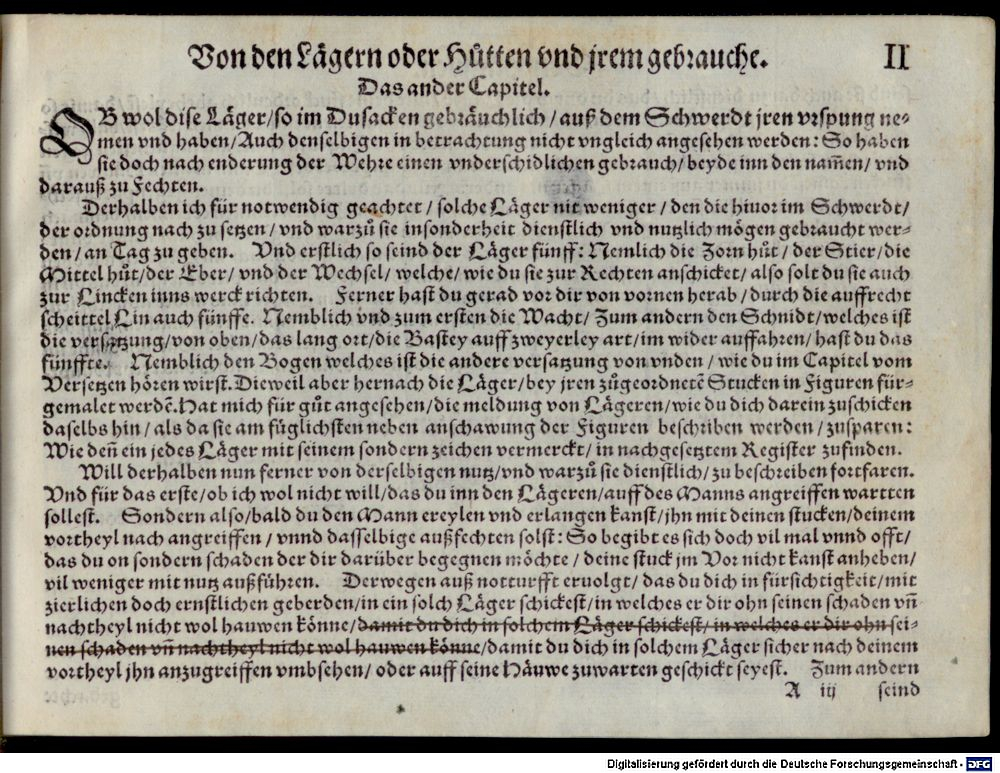 Von den Lägern oder Hůtten vnd jrem gebrauche. II
Das ander Capitel.
OB wol dise Läger/so im Dusacken gebräuchlich / auß dem Schwerdt jren vrspung ne-
men vnd haben/Auch denselbigen in betrachtung nicht vngleich angesehen werden: So haben
sie doch nach enderung der Wehre einen vnderschidlichen gebrauch/ beyde inn den nam̃en/ vnd
darauß zu Fechten.
Derhalben ich für notwendig geachtet / solche Läger nit weniger / den die hiuor im Schwerdt/
der ordnung nach zu setzen/ vnd warzů sie insonderheit dienstlich vnd nutzlich mögen gebraucht wer-
den/ an Tag zu geben. Vnd erstlich so seind der Läger fünff: Nemlich die Zorn hůt/ der Stier/die
Mittel hůt/der Eber/ vnd der Wechsel/ welche/ wie du sie zur Rechten anschicket/ also solt du sie auch
zur Lincken inns werck richten. Ferner hast du gerad vor dir von vornen herab/durch die auffrecht
scheittel Lin auch fünffe. Nemblich vnd zum ersten die Wacht/ Zum andern den Schnidt/welches ist
die versatzung/von oben/das lang ort/die Bastey auff zweyerley art/im wider auffahren/ hast du das
fünffte. Nemblich den Bogen welches ist die andere versatzung von vnden / wie du im Capitel vom
Versetzen hören wirst. Dieweil aber hernach die Läger/bey jren zůgeordnetẽ Stucken in Figuren für-
gemalet werdẽ. Hat mich für gůt angesehen/die meldung von Lägeren/wie du dich darein zuschicken
daselbs hin/ als da sie am füglichsten neben anschawung der Figuren beschriben werden / zusparen:
Wie den̄ ein jedes Läger mit seinem sondern zeichen vermerckt/ in nachgesetztem Register zufinden.
Will derhalben nun ferner von derselbigen nutz/vnd warzů sie dienstlich/ zu beschreiben fortfaren.
Vnd für das erste/ob ich wol nicht will/das du inn den Lägeren/auff des Manns angreiffen wartten
sollest. Sondern also/bald du den Mann ereylen vnd erlangen kanst/jhn mit deinen stucken/deinem
vortheyl nach angreiffen / vnnd dasselbige außfechten solst: So begibt es sich doch vil mal vnnd offt/
das du on sondern schaden der dir darüber begegnen möchte / deine stuck jm Vor nicht kanst anheben/
vil weniger mit nutz außführen. Derwegen auß notturfft eruolgt/ das du dich in fürsichtigkeit/ mit
zierlichen doch ernstlichen geberden/in ein solch Läger schickest/in welches er dir ohn seinen schaden vn̄
nachtheyl nicht wol hauwen könne/damit du dich in solchem Läger schickest/ in welches er dir ohn sei-
nen schaden vn̄ nachtheyl nicht wol hauwen könne/damit du dich in solchem Läger sicher nach deinem
vortheyl jhn anzugreiffen vmbsehen/ oder auff seine Häuwe zuwarten geschickt seyest. Zum andern
A iij seind
Digitalisierung gefördert durch die Deutsche Forschungsgemeinschaft - DFG